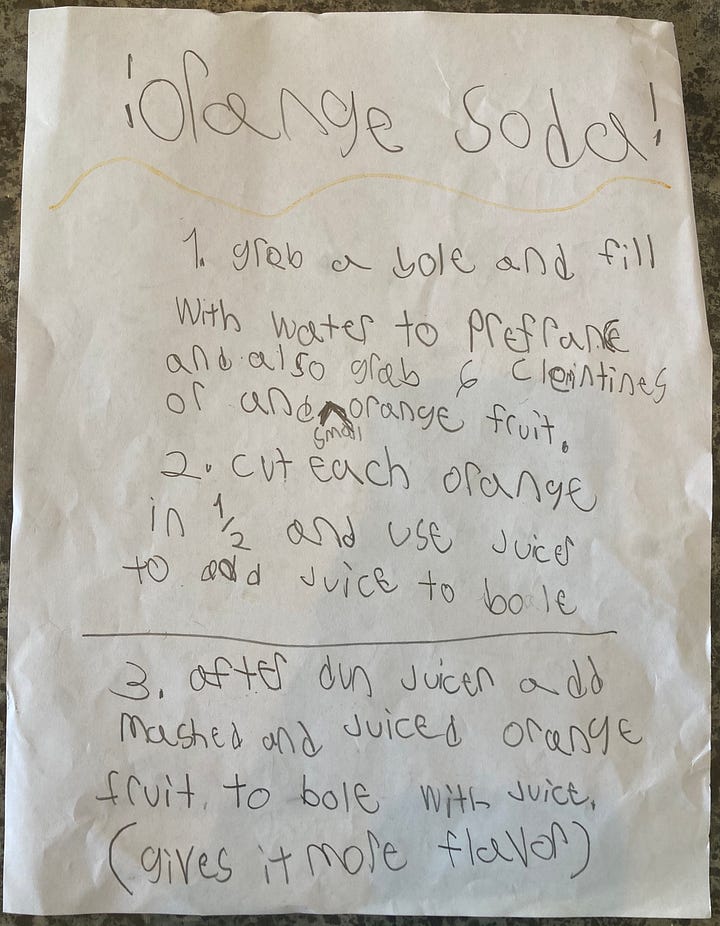 ¡Orange soda!
1. grab a bole and fill
with water to prefrance
and also grab 6 clemintines
or and small orange fruit.
2. cut each orange
in 1/2 and use juicer
to add juice to bole
3. after dun juicen add
mashed and juiced orange
fruit. to bole with juice.
(gives it more flavor)